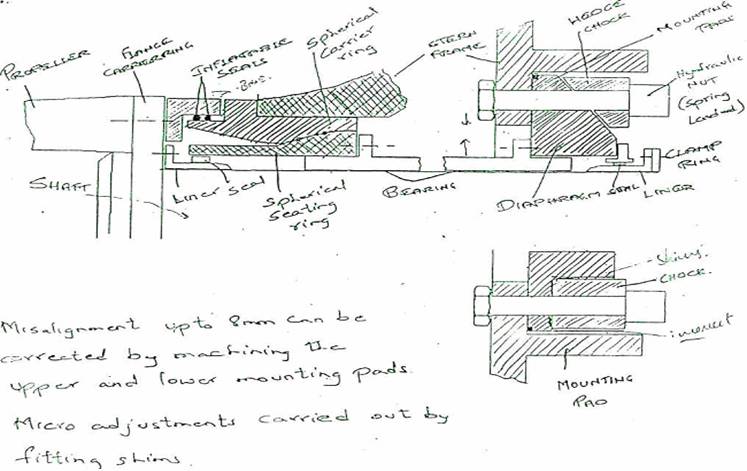 PROPELLER
FLANGE
CARRIER RING
INFLATABLE
SEALS
Spherical
Carrier
ring
STERN
FRAME
WEDGE
CHOCK
MOUNTING
PADS
Hydraulic
NUT
(Spring
Loaded)
CLAMP
RING
SHAFT
LINER SEAL
Spherical
Seating
ring
BEARING
DIAPHRAGM SEAL
LINER
Shims
CHOCK
MOUNTING
PAD
Misalignment upto 8mm can be
corrected by machining the
upper and lower mounting pads.
Micro adjustments carried out by
fitting shims.